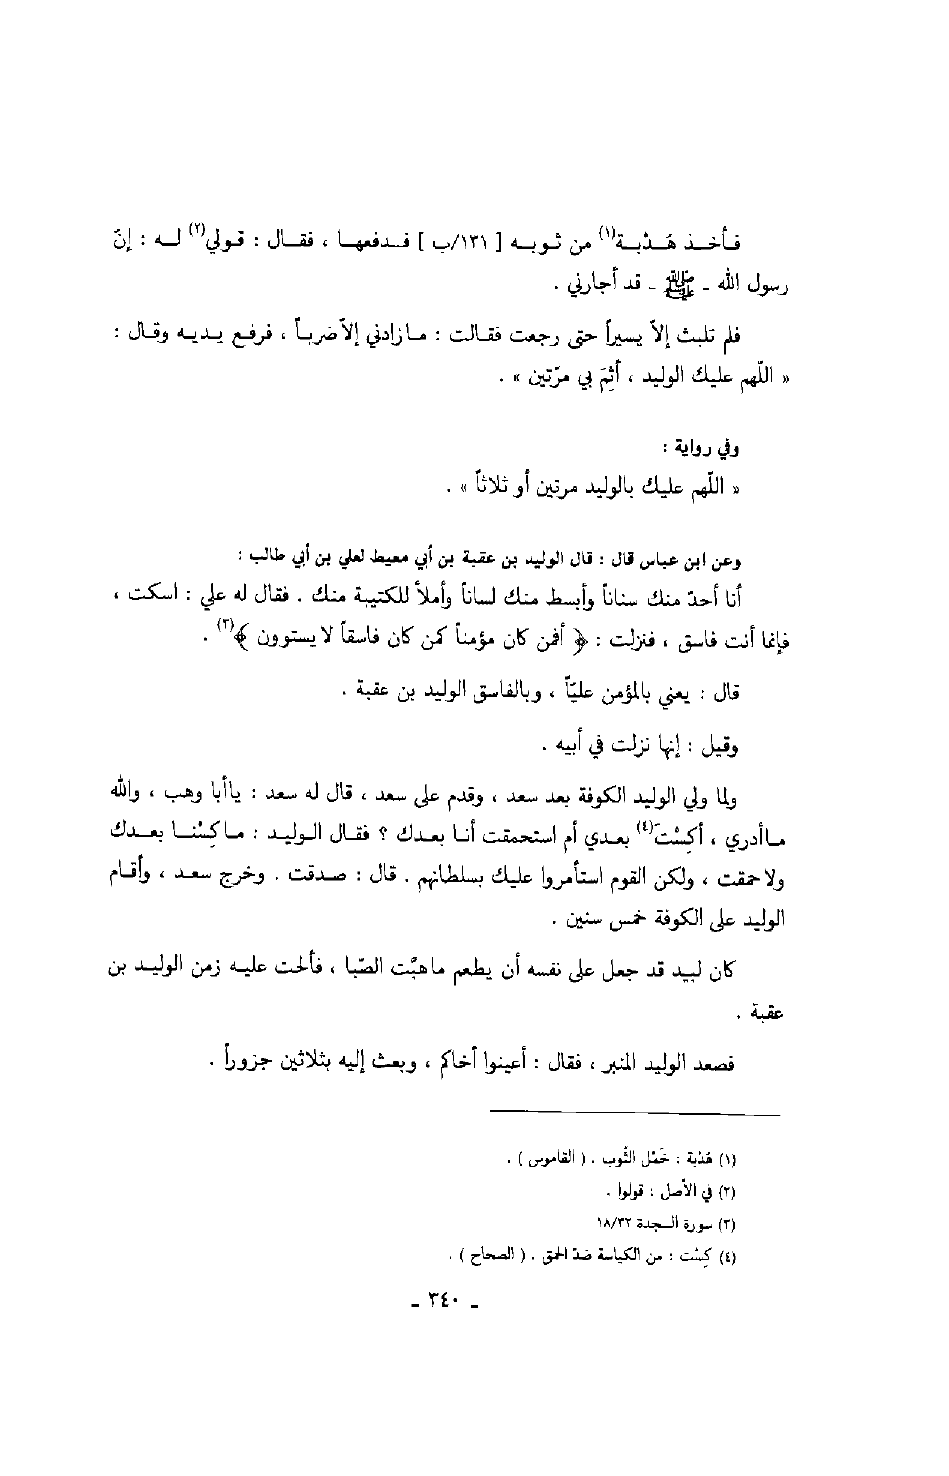 فأخذ هُدْبة(١) من ثوبه [ ١٣١/ب ] فدفعها ، فقال : قولي(٢) له : إنّ
رسول الله ـ ﷺ ـ قد أجارني .
فلم تلبث إلاّ يسيراً حتى رجعت فقالت : مازادني إلاّ ضرباً ، فرفع يديه وقال :
« اللّهم عليك الوليد ، أثِمَ بي مرّتين » .
وفي رواية :
« اللّهم عليك بالوليد مرتين أو ثلاثاً » .
وعن ابن عباس قال : قال الوليد بن عقبة بن أبي معيط لعلي بن أبي طالب :
أنا أحدّ منك سناناً وأبسط منك لساناً وأملأ للكتيبة منك . فقال له علي : اسكت ،
فإنما أنت فاسق ، فنزلت : ﴿ أفمن كان مؤمناً كمن كان فاسقاً لا يستوون ﴾(٣) .
قال : يعني بالمؤمن عليّاً ، وبالفاسق الوليد بن عقبة .
وقيل : إنها نزلت في أبيه .
ولما ولي الوليد الكوفة بعد سعد ، وقدم على سعد ، قال له سعد : ياأبا وهب ، والله
ماأدري ، أكِسْتَ(٤) بعدي أم استحمقت أنا بعدك ؟ فقال الوليد : ماكِسْنا بعدك
ولاحمقت ، ولكن القوم استأمروا عليك بسلطانهم . قال : صدقت . وخرج سعد ، وأقام
الوليد على الكوفة خمس سنين .
كان لبيد قد جعل على نفسه أن يطعم ماهبَّت الصَّبا ، فألحت عليه زمن الوليد بن
عقبة .
فصعد الوليد المنبر ، فقال : أعينوا أخاكم ، وبعث إليه بثلاثين جزوراً .
(١) هُدْبة : خَمْل الثّوب . ( القاموس ) .
(٢) في الأصل : قولوا .
(٣) سورة السجدة ١٨/٣٢
(٤) كِسْت : من الكياسة ضدّ الحمق . ( الصحاح ) .
ـ ٣٤٠ ـ